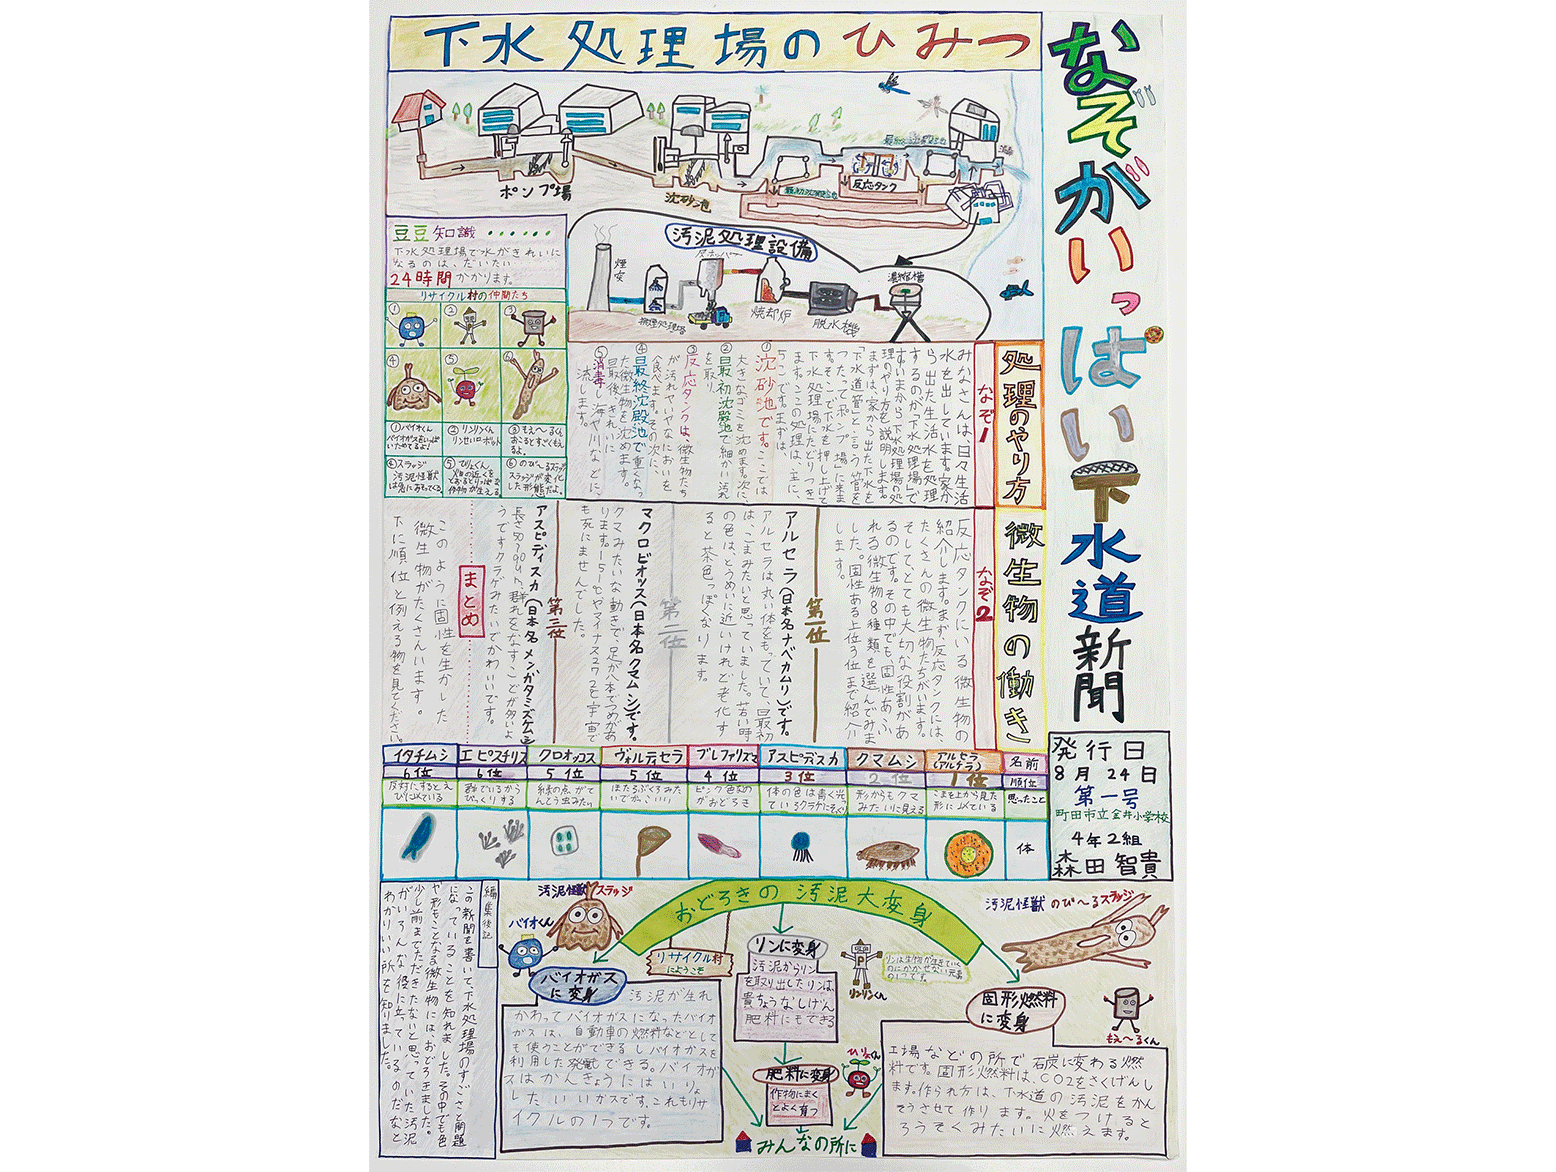 なぞがいっぱい下水道新聞
発行日
8月24日
第一号
町田市立金井小学校
4年2組
森田智貴
下水処理場のひみつ
ポンプ場
沈砂池
反応タンク
汚泥処理設備
煙突
焼却炉
脱水機
濃縮槽
豆豆知識
下水処理場で水がきれいに
なるのは、だいたい
24時間かかります。
リサイクル村の仲間たち
①
②
③
④
⑤
⑥
①バイオくん
②リンリンくん
リンせいロボット
③もえ~るくん
おこるとすごくもえ
るよ。
④スラッジ
汚泥怪獣
⑤ひりょくん
⑥のび~るスラッジ
スラッジが変化
した形態だよ。
処理のやり方
なぞ1
みなさんは日々生活
水を出しています。家か
ら出た生活水を処理
するのが「下水処理場」で
す。いまから下水処理場の処
理のやり方を説明します。
まずは、家から出た下水を
「下水道管」と言う管を
つたって「ポンプ場」に来ま
す。そこで下水を押し上げて
下水処理場にたどりつき
ます。ここの処理は、主に、
5つです。まずは、
①沈砂池です。ここでは
大きなゴミを沈めます。次に、
②最初沈殿池で細かい汚れ
を取り
③反応タンクは、微生物たち
が汚れやいやなにおいを
食べます。その次に、
④最終沈殿池で重くなっ
た微生物を沈めます。
回取後きれいに
⑤消毒し海や川などに、
流します。
微生物の働き
なぞ2
反応タンクにいる微生物の
紹介します。まず反応タンクには、
たくさんの微生物たちがいます。
そして、とても大切な役割があ
るのです。その中でも、固性あふ
れる微生物8種類を選んでみま
した。固性ある上位3位まで紹介
します。
第一位
アルセラ(日本名ナベカムリ)です。
アルセラは丸い体をもっていて、回最初
は、こまみたいと思っていました。若い時
の色は、とうめいに近いけれど老化す
ると茶色っぽくなります。
第二位
マクロビオッス(日本名クマムシ)です。
クマみたいな動きで、足が八本でつめがあ
ります。151℃やマイナス272℃宇宙で
も死にませんでした。
第三位
アスピディスカ(日本名メンガタミズケムシ)
長さ50~90μm、群れをなすことが多いよ
うですクラゲみたいでかわいいです。
まとめ
このように固性を生かした
微生物がたくさんいます。
下に順位と例える物を見てください。
名前
アルセラ
(アルチラ)
クマムシ
アスピディスカ
ブレファリズマ
ヴォルティセラ
クロオッコス
エピスチリス
イタチムシ
順位
1位
2位
3位
4位
5位
5位
6位
6位
思ったこと
こまを上から見た
形に似ている
形からもクマ
みたいに見える
体の色は青く光っ
ているクラゲにそくり
ピンク色なの
がおどろき
ほたるぶくろみた
いでかっこいい
緑の点がて
んとう虫みたい
群でいるから
びっくりする
反対にするとえ
びに似ている
体
編集後記
この新聞を書いて、下水処理場のすごさと問題
になっていることを知れました。その中でも色
や形もことなる微生物にはおどろきました。
少し前までただきたないと思っていた汚泥
がいろんな役に立っているのだなと
わかりいい所を知りました。
おどろきの汚泥大変身
汚泥怪獣スラッジ
バイオくん
リサイクル村
にようこそ
バイオガス
に変身
汚泥が生れ
かわってバイオガスになったバイオ
ガスは、自動車の燃料などとして
も使うことができるしバイオガスを
利用した発電できる。バイオガ
スはかんきょうにはいりょ
したいいガスです。これもリサ
イクルの1つです。
リンに変身
汚泥からリン
を取り出したリンは、
貴ちょうなしげん
肥料にもできる
P
リンリンくん
リンは生物が生きていく
のにかかせない元素
の1つです。
肥料に変身
作物にまく
とよく育つ
ひりょくん
みんなの所に
汚泥怪獣のび~るスラッジ
固形燃料
に変身
もえ~るくん
工場などの所で石炭に変わる燃
料です。固形燃料は、CO2をさくげんし
ます。作られ方は、下水道の汚泥をかん
そうさせて作ります。火をつけると
ろうそくみたいに燃えます。